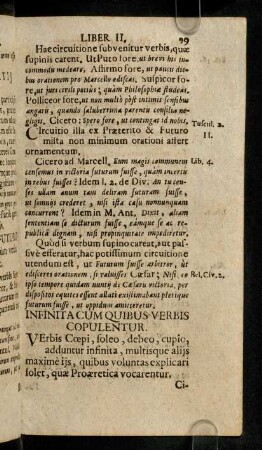 LIBER II. 99
Hac circuitione subvenitur verbis, quæ
supinis carent. Ut Puto fore, ut brevi his in-
commodis medeare. Affirmo fore, ut paucis die-
bus orationem pro Marcello ediscas. Suspicor fo-
re, ut juri civili potius, quàm Philosophiæ studeas.
Polliceor fore, ut non multò pòst intimis sensibus
angaris, quandò saluberrima parentu consilia ne-
gligis. Cicero: Spero fore, ut contingat id nobis.
Circuitio illa ex Præterito & Futuro
mista non minimum orationi affert
ornamentum.
Tuscul. 2.
II.
Cicero ad Marcell. Eum magis communem
censemus in victoria futurum fuisse, quàm incertu
in rebus fuisse? Idem l. 2. de Div. An tu cen-
ses ullam anum tam deliram futuram fuisse,
ut somnijs crederet, nisi ista casu nonnunquam
concurrent? Idem in M. Ant. Dixit, aliam
sententiam se dicturum fuisse, eamque se ac re-
publicâ dignam, nisi propinquitate impediretur.
Lib. 4.
Quòd si verbum supino careat, aut pas-
sivè efferatur, hac potissimum circuitione
utendum est, ut Futurum fuisse arbitror, ut
edisceres orationem, si voluisses Cæsar; Nisi eo
ipso tempore quidam nuntij de Cæsaris victoria, per
dispositos equites essent allati existimabant plerique
futurum fuisse, ut oppidum amitteretur.
Bel. Civ. 2.
INFINITA CUM QUIBUS VERBIS
COPULENTUR.
VErbis Cœpi, soleo, debeo, cupio,
adduntur infinita, multisque alijs
maximè ijs, quibus voluntas explicari
solet, quæ Proæretica vocarentur.
Ci-